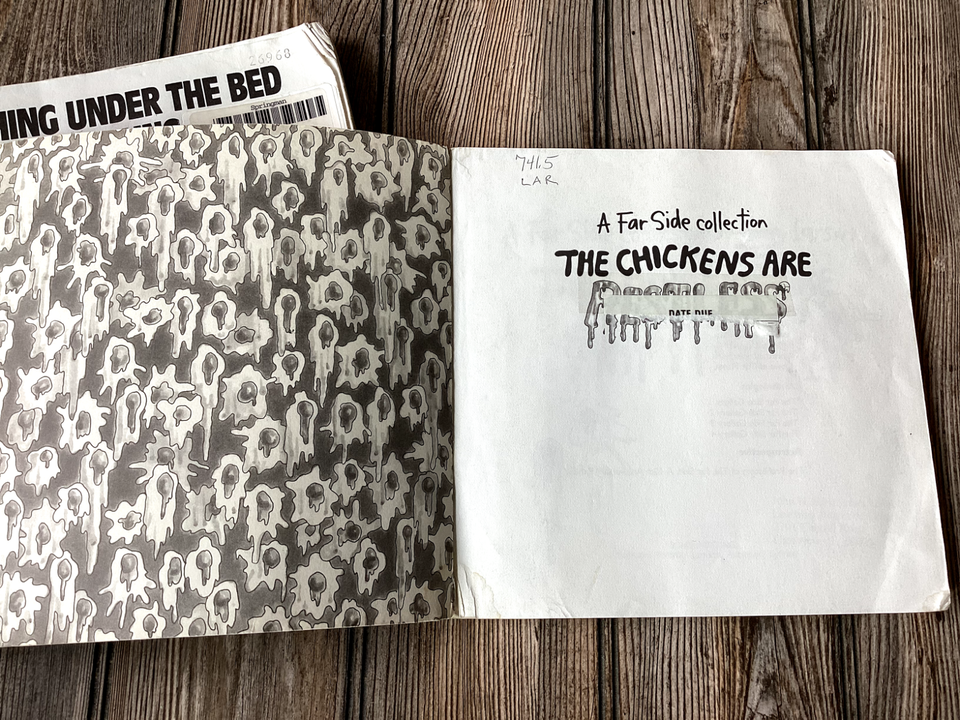 26968
HING UNDER THE BED
Springman
741.5
LAR
A Far Side collection
THE CHICKENS ARE
DATE DUE